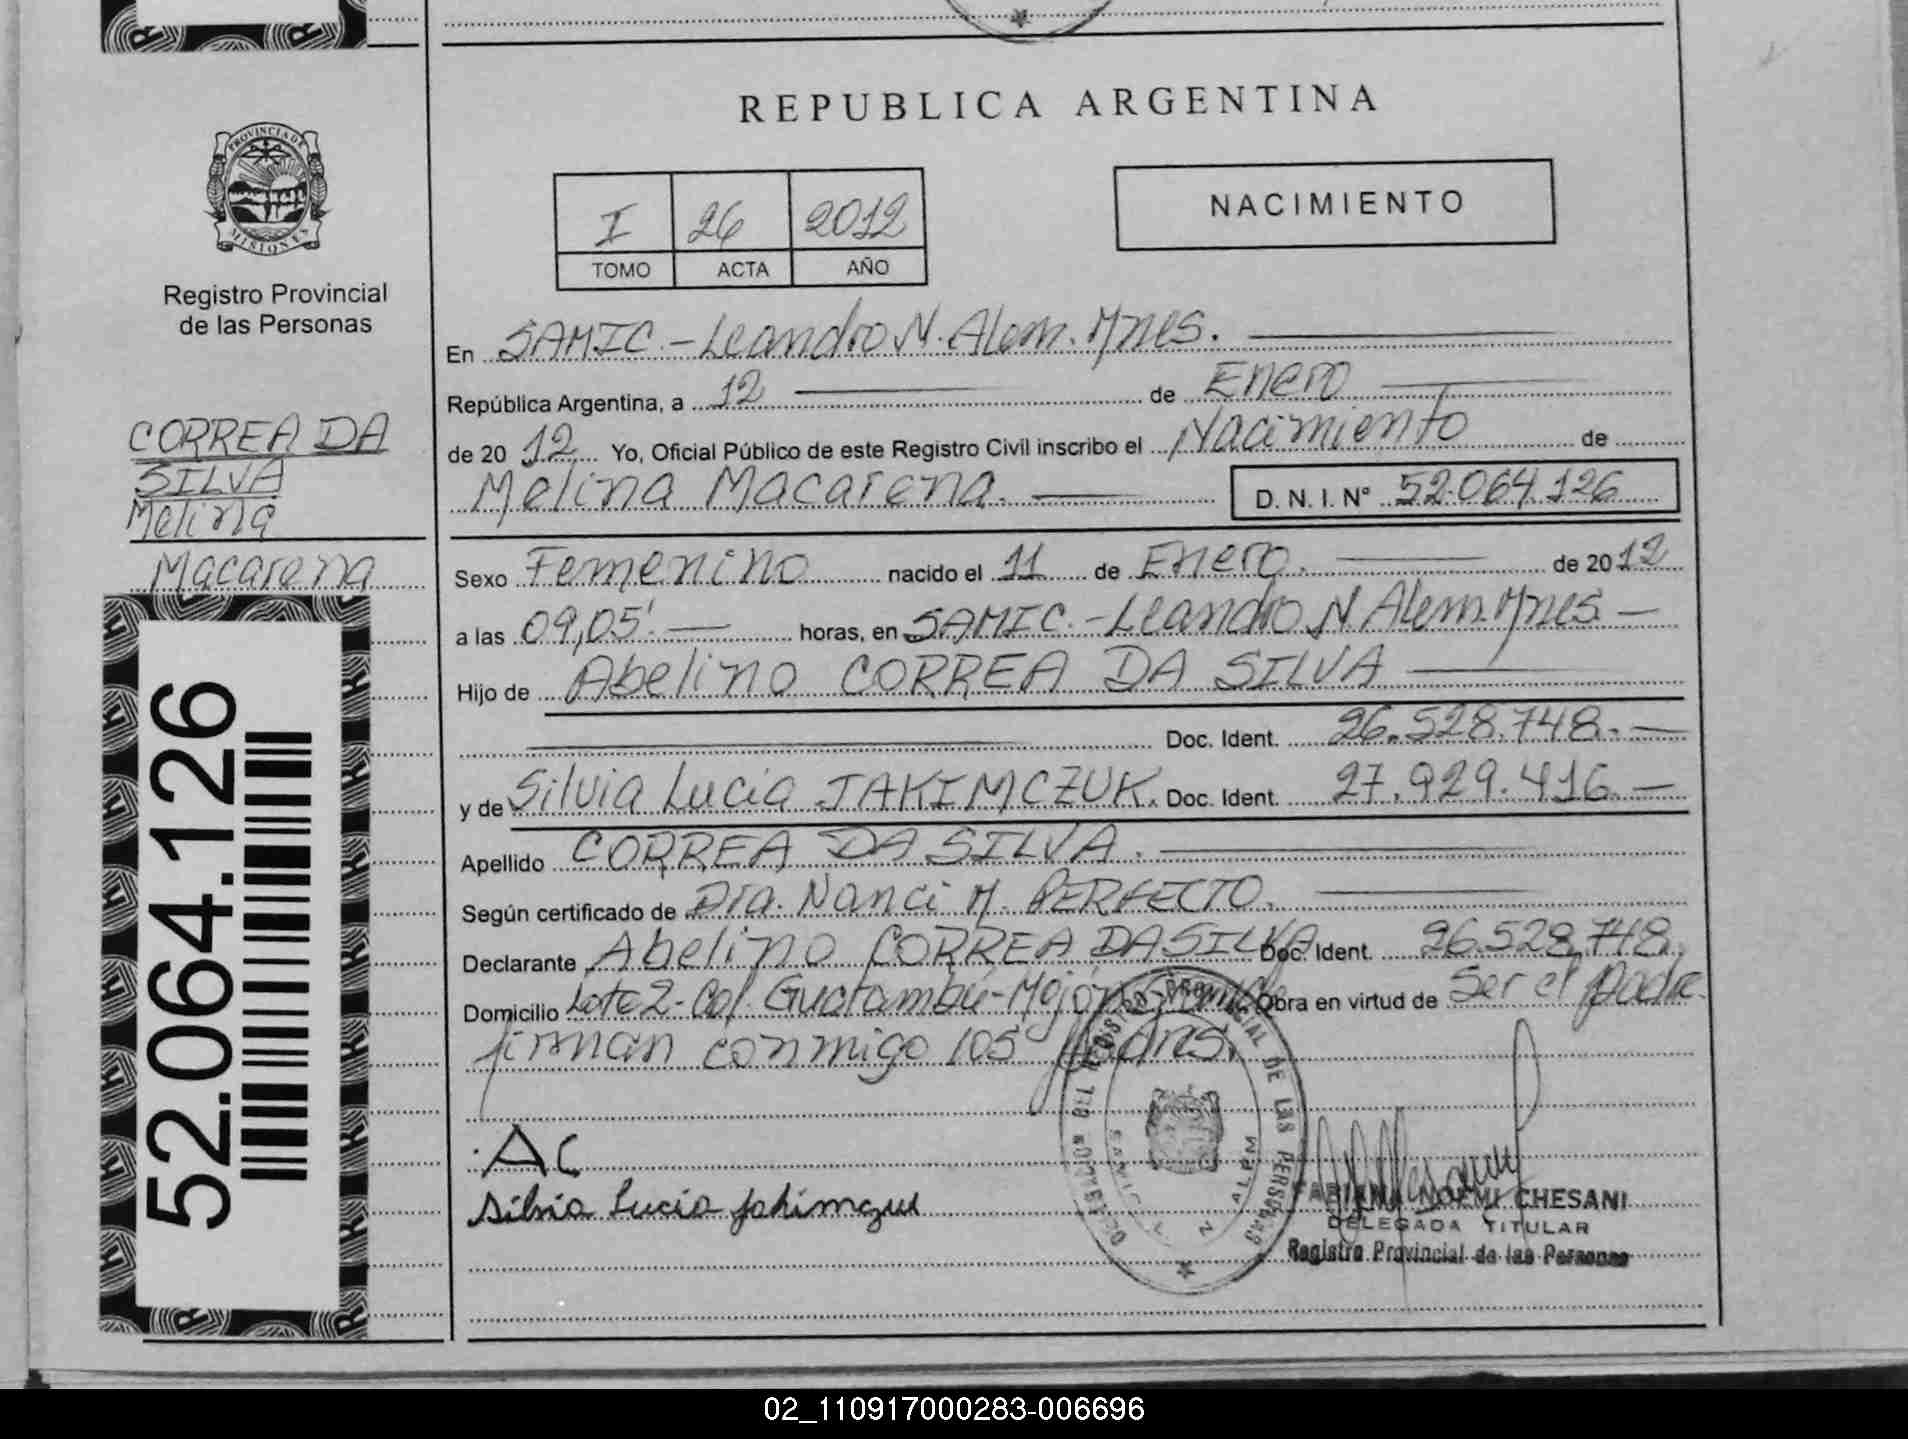 REPUBLICA ARGENTINA
PROVINCIA DE
MISIONES
Registro Provincial
de las Personas
I 26 2012
TOMO ACTA AÑO
NACIMIENTO
En SAMIC - Leandro N. Alem. Mnes.
República Argentina, a 12 de Enero
de 2012 Yo, Oficial Público de este Registro Civil inscribo el Nacimiento de
Melina Macarena. D. N. I. N° 52.064.126
CORREA DA
SILVA
Melina
Macarena
Sexo Femenino nacido el 11 de Enero. de 2012
a las 09,05' horas, en SAMIC. - Leandro N Alem. Mnes
Hijo de Abelino CORREA DA SILVA
Doc. Ident. 26.528.748.
y de Silvia Lucia JAKIMCZUK. Doc. Ident. 27.929.416
Apellido CORREA DA SILVA.
Según certificado de Dra. Nanci M. PERFECTO.
Declarante Abelino CORREA DA SILVA Doc. Ident. 26.528.748.
Domicilio Lote 2 - Col. Guatambú - Mojón Grande Obra en virtud de Ser el padre
firman conmigo los padres.
52.064.126
AC
Silvia Lucia Jakimczuk
REGISTRO PROVINCIAL DE LAS PERSONAS
SAMIC L. N. ALEM
FABIANA NOEMI CHESANI
DELEGADA TITULAR
Registro Provincial de las Personas
02_110917000283-006696